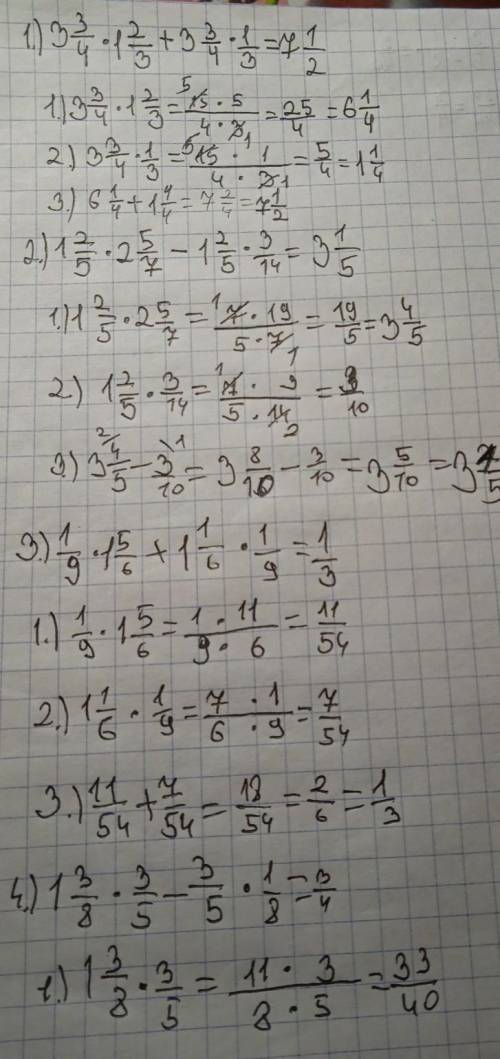 1.) 3 3/4 · 1 2/3 + 3 3/4 · 1/3 = 7 1/2
1.) 3 3/4 · 1 2/3 = 15 · 5 / 4 · 3 = 25/4 = 6 1/4
2.) 3 3/4 · 1/3 = 15 · 1 / 4 · 3 = 5/4 = 1 1/4
3.) 6 1/4 + 1 1/4 = 7 2/4 = 7 1/2
2.) 1 2/5 · 2 5/7 − 1 2/5 · 3/14 = 3 1/5
1.) 1 2/5 · 2 5/7 = 7 · 19 / 5 · 7 = 19/5 = 3 4/5
2.) 1 2/5 · 3/14 = 7 · 3 / 5 · 14 = 3/10
3.) 3 4/5 − 3/10 = 3 8/10 − 3/10 = 3 5/10 = 3 /5
3.) 1/9 · 1 5/6 + 1 1/6 · 1/9 = 1/3
1.) 1/9 · 1 5/6 = 1 · 11 / 9 · 6 = 11/54
2.) 1 1/6 · 1/9 = 7 · 1 / 6 · 9 = 7/54
3.) 11/54 + 7/54 = 18/54 = 2/6 = 1/3
4.) 1 3/8 · 3/5 − 3/5 · 1/8 = 3/4
1.) 1 3/8 · 3/5 = 11 · 3 / 8 · 5 = 33/40